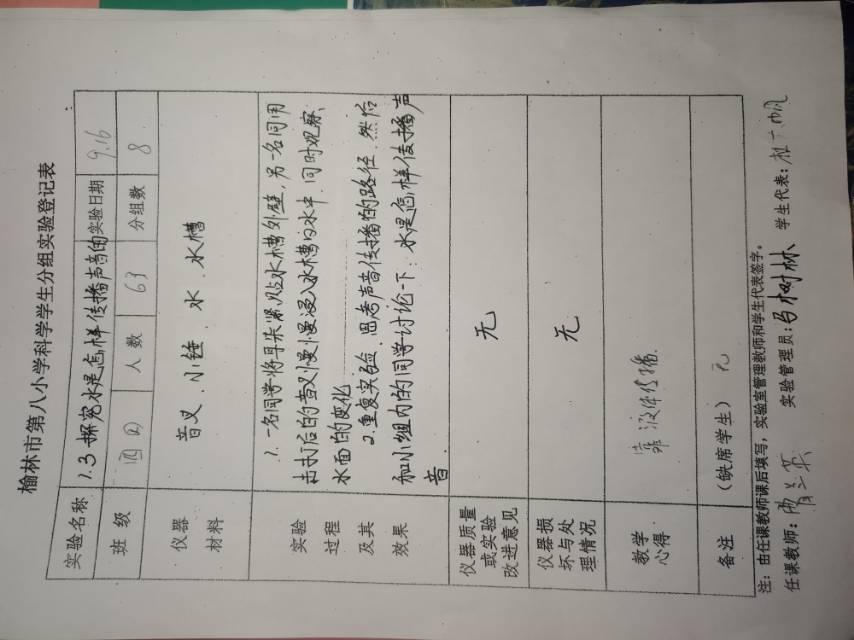 榆林市第八小学科学学生分组实验登记表
实验名称 1.3探究水是怎样传播声音的 实验日期 9.16
班级 四四 人数 63 分组数 8
仪器材料 音叉、小锤、水、水槽
实验过程及其效果
1.一名同学将耳朵紧贴水槽外壁,另一名同用
击打后的音叉慢慢浸入水槽的水中.同时观察
水面的变化
2.重复实验.思考声音传播的路径.然后
和小组内的同学讨论一下:水是怎样传播声
音.
仪器质量或实验改进意见 无
仪器损坏与处理情况 无
教学心得 液体传播.
备注 (缺席学生) 无
注:由任课教师课后填写,实验室管理教师和学生代表签字。
任课教师: 实验管理员:马树林 学生代表: